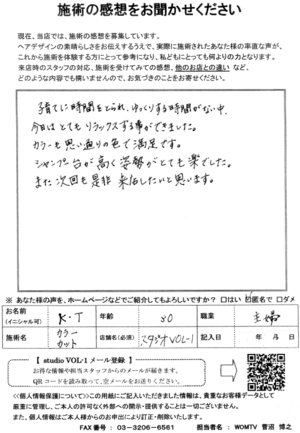 施術の感想をお聞かせください
現在、当店では、施術の感想を募集しています。
ヘアデザインの素晴らしさをお伝えするうえで、実際に施術されたあなた様の率直な声が、
これから施術を体験する方にとって参考になり、私どもにとっても何よりの力となります。
来店時のスタッフの対応、施術を受けてみての感想、他のお店との違い など、
どのような内容でも構いませんので、お気づきのことをお寄せください。
子育てに時間をとられ、ゆっくりする時間がない中、
今日はとてもリラックスする事ができました。
カラーも思い通りの色で満足です。
シャンプー台が高く姿勢がとても楽でした。
また次回も是非来店したいと思います。
※ あなた様の声を、ホームページなどでご紹介してもよろしいですか? □はい ☑匿名で □ダメ
お名前
(イニシャル可) K・T 年齢 30 職業 主婦
施術名 カラー カット 店舗名(必須) スタジオVOL-1 記入日 年 月 日
【 studio VOL-1 メール登録 】
お得な情報や担当スタッフからのメールが届きます。
QRコードを読み取って、空メールをお送りください。
<<個人情報保護について>>この用紙にご記入いただきました情報は、貴重なお客様データとして
厳重に管理し、ご本人の許可なく外部への開示・提供することは一切ございません。
また、個人情報はご本人様からのお申出により訂正・削除いたします。
FAX番号 : 03-3206-6561 担当者 : WOMTV 菅沼 博之